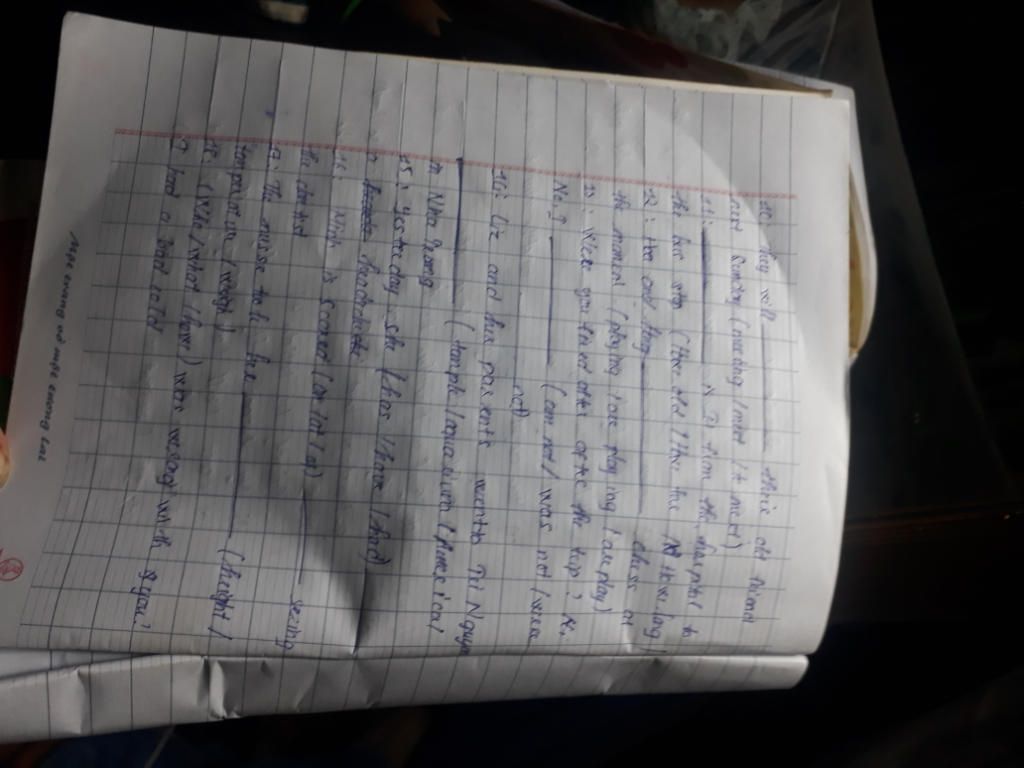 10: they will ______ their old friend
next Sunday (meeting / meet / to meet)
11: ______ is it from the hospital to
the bus stop (How old / How far / How long)
12: Hoa and Long ______ chess at
the moment (playing / are playing / are play)
13: Were you tired after the trip?
No. I ______ (am not / was not / were
not)
14: Liz and her parents went to Tri Nguyen
______ (temple / aquarium /
in Nha Trang
15: Yesterday she (has / have / had)
a headache
16. Ninh is scared (on / at / of) ______ seeing
the dentist
17: The nurse her ______ (height /
temperature / weigh)
18: (Why / What / how) was wrong with you?
I had a bad cold